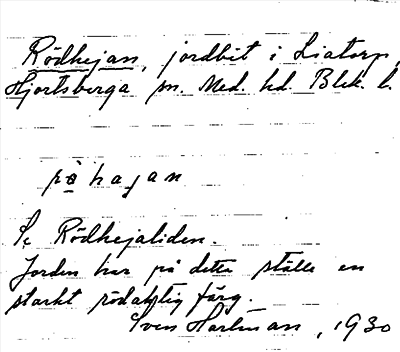 Rödhejan, jordbit i Liatorp,
Hjortsberga sn. Med. hd. Blek. l.
rö hajan
Se Rödhejaliden.
Jorden har på detta ställe en
starkt rödaktig färg.
Sven Hartman, 1930